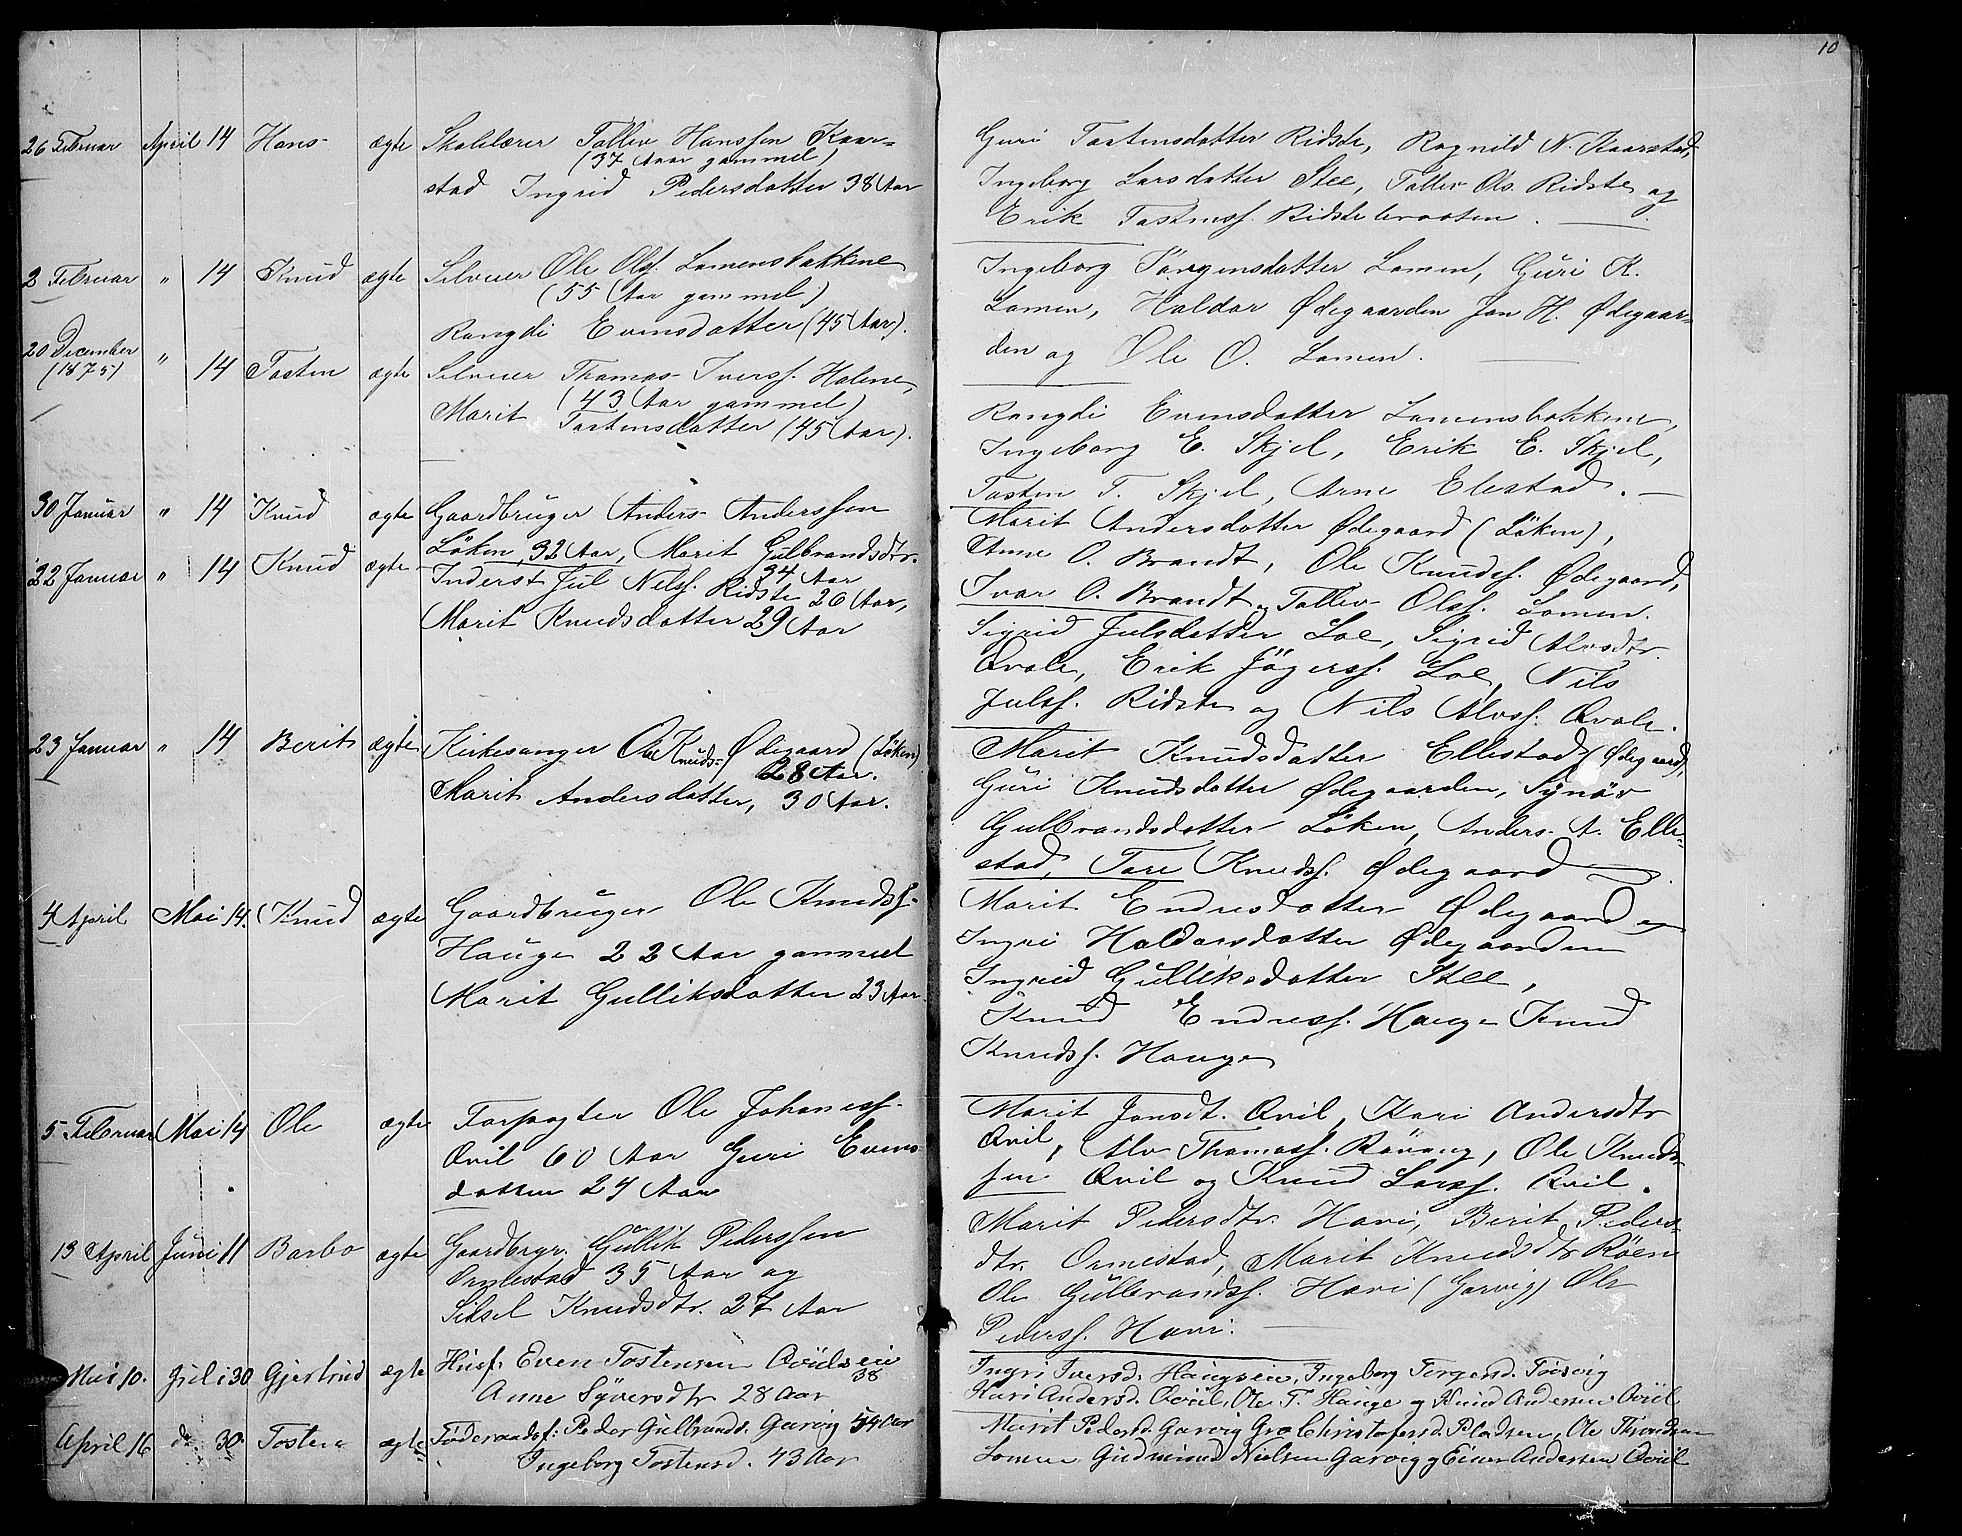 10
26 Februar April 14 Hans ægte Skolelærer Tollev Hanssen Kaar=
(37 Aar gammel)
stad Ingrid Pedersdatter 38 Aar
Guri Tostensdatter Ridste, Ragnild N. Kaarstad,
Ingeborg Larsdatter Stee, Tollev Ols. Ridste og
Erik Tostenss. Ridstebraaten.
2 Februar " 14 Knud ægte Selveier Ole Olss. Lomensbakkene
(55 Aar gammel)
Rangdi Evensdatter (45 Aar).
Ingeborg Jørgensdatter Lomen, Guri K.
Lomen, Haldor Ødegaarden Jon H. Ødegaar=
den og Ole O. Lomen.
20 December (1875) " 14 Tosten ægte Selveier Thomas Iverss. Halene,
(43 Aar gammel)
Marit Tostensdatter (45 Aar).
Rangdi Evensdatter Lomensbakkene,
Ingeborg E. Skjel, Erik E. Skjel,
Tosten T. Skjel, Arne Elestad.
30 Januar " 14 Knud ægte Gaardbruger Anders Anderssen
Løken, 32 Aar, Marit Gulbrandsdtr.
34 Aar
Marit Andersdatter Ødegaard (Løken),
Anne O. Brandt, Ole Knudss. Ødegaard,
Ivar O. Brandt og Tollev Olss. Lomen.
22 Januar " 14 Knud ægte Inderst Jul Nelss. Ridste 26 Aar,
Marit Knudsdatter 29 Aar
Sigrid Julsdatter Loe, Sigrid Alvsdtr.
Qvale, Erik Jøgerss. Loe, Nils
Julss. Ridste og Nils Alvss. Qvale.
23 Januar " 14 Berit ægte Kirkesanger Ole Knuds= Ødegaard (Løken)
28 Aar.
Marit Andersdatter, 30 Aar.
Marit Knudsdatter Ellestad (Ødegaard),
Guri Knudsdatter Ødegaarden, Synøv
Gulbrandsdatter Løken, Anders A. Elle=
stad, Tore Knudss. Ødegaard
4 April Mai 14. Knud ægte Gaardbruger Ole Knudss.
Hauge 22 Aar gammel
Marit Gulliksdatter 23 Aar.
Marit Endresdatter Ødegaard og
Ingri Haldorsdatter Ødegaarden
Ingrid Gulliksdatter Stee,
Knud Endress. Hauge Knud
Knudss. Hauge
5 Februar Mai 14 Ole ægte Forpagter Ole Johaness.
Qvil 60 Aar Guri Evens
datter 27 Aar
Marit Jonsdt. Qvil, Kari Andersdtr
Qvil, Alv Thomass. Røvang, Ole Knuds=
sen Qvil og Knud Larss. Qvil.
13 April Juni 11 Barbo ægte Gaardbrgr. Gullik Pederssen
Ormestad 35 Aar og
Sidsel Knudsdtr. 27 Aar
Marit Pedersdtr. Havi, Berit Peders=
dtr. Ormestad, Marit Knudsdtr Røen
Ole Gulbrandss. Havi (Garvig) Ole
Pederss. Havi.
Mai 10. Juli 30 Gjertrud ægte Husf: Even Tostensen Qvilseie
38
Anne Syversdtr 28 Aar
Ingri Iversd. Haugseie, Ingeborg Torgersd.
Kari Andersd. Qviil, Ole T. Hauge og Knud Andersen Qviil
April 16 do 30. Tosten ægte Føderaadsf: Peder Gulbrands. Garvig 54 Aar
Ingeborg Tostensd. 43 Aar
Marit Pedersd. Garvig Gro Christofersd. Pladsen, Ole
Lomen Gudmund Nielsen Garvig og Einar Andersen Qviil